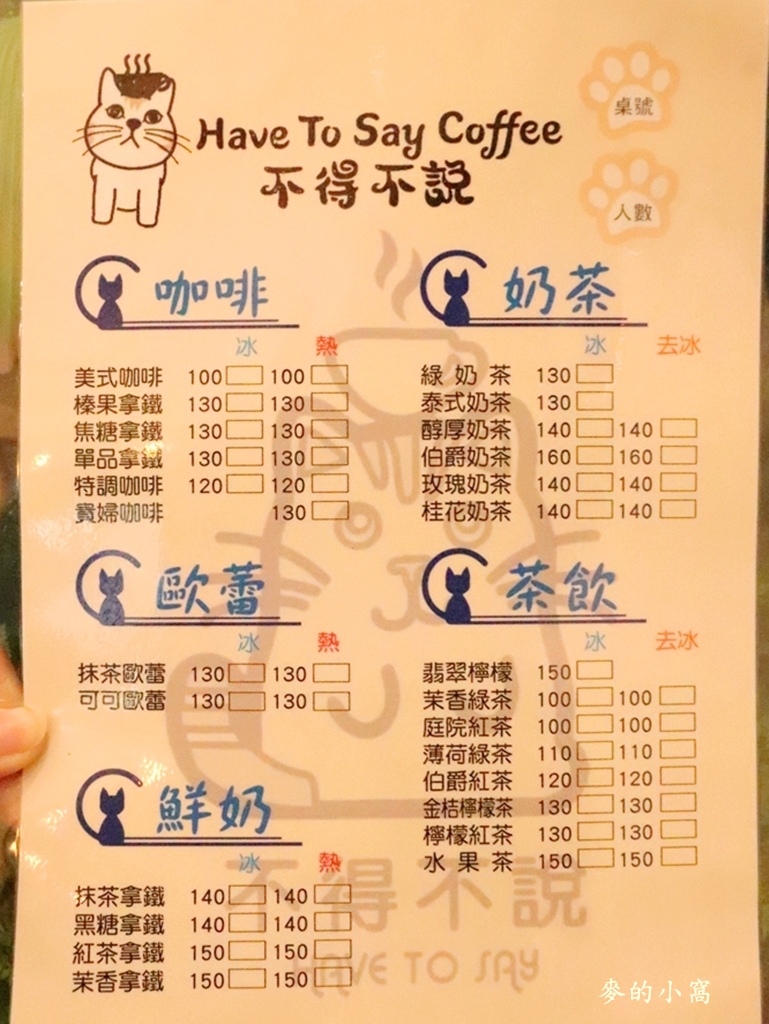 Have To Say Coffee
不得不説
桌號
人數
咖啡
冰 熱
美式咖啡 100 100
榛果拿鐵 130 130
焦糖拿鐵 130 130
單品拿鐵 130 130
特調咖啡 120 120
寡婦咖啡 130
奶茶
冰 去冰
綠奶茶 130
泰式奶茶 130
醇厚奶茶 140 140
伯爵奶茶 160 160
玫瑰奶茶 140 140
桂花奶茶 140 140
歐蕾
冰 熱
抹茶歐蕾 130 130
可可歐蕾 130 130
茶飲
冰 去冰
翡翠檸檬 150
茉香綠茶 100 100
庭院紅茶 100 100
薄荷綠茶 110 110
伯爵紅茶 120 120
金桔檸檬茶 130 130
檸檬紅茶 130 130
水果茶 150 150
鮮奶
冰 熱
抹茶拿鐵 140 140
黑糖拿鐵 140 140
紅茶拿鐵 150 150
茉香拿鐵 150 150
不得不説
HAVE TO SAY
麥的小窩